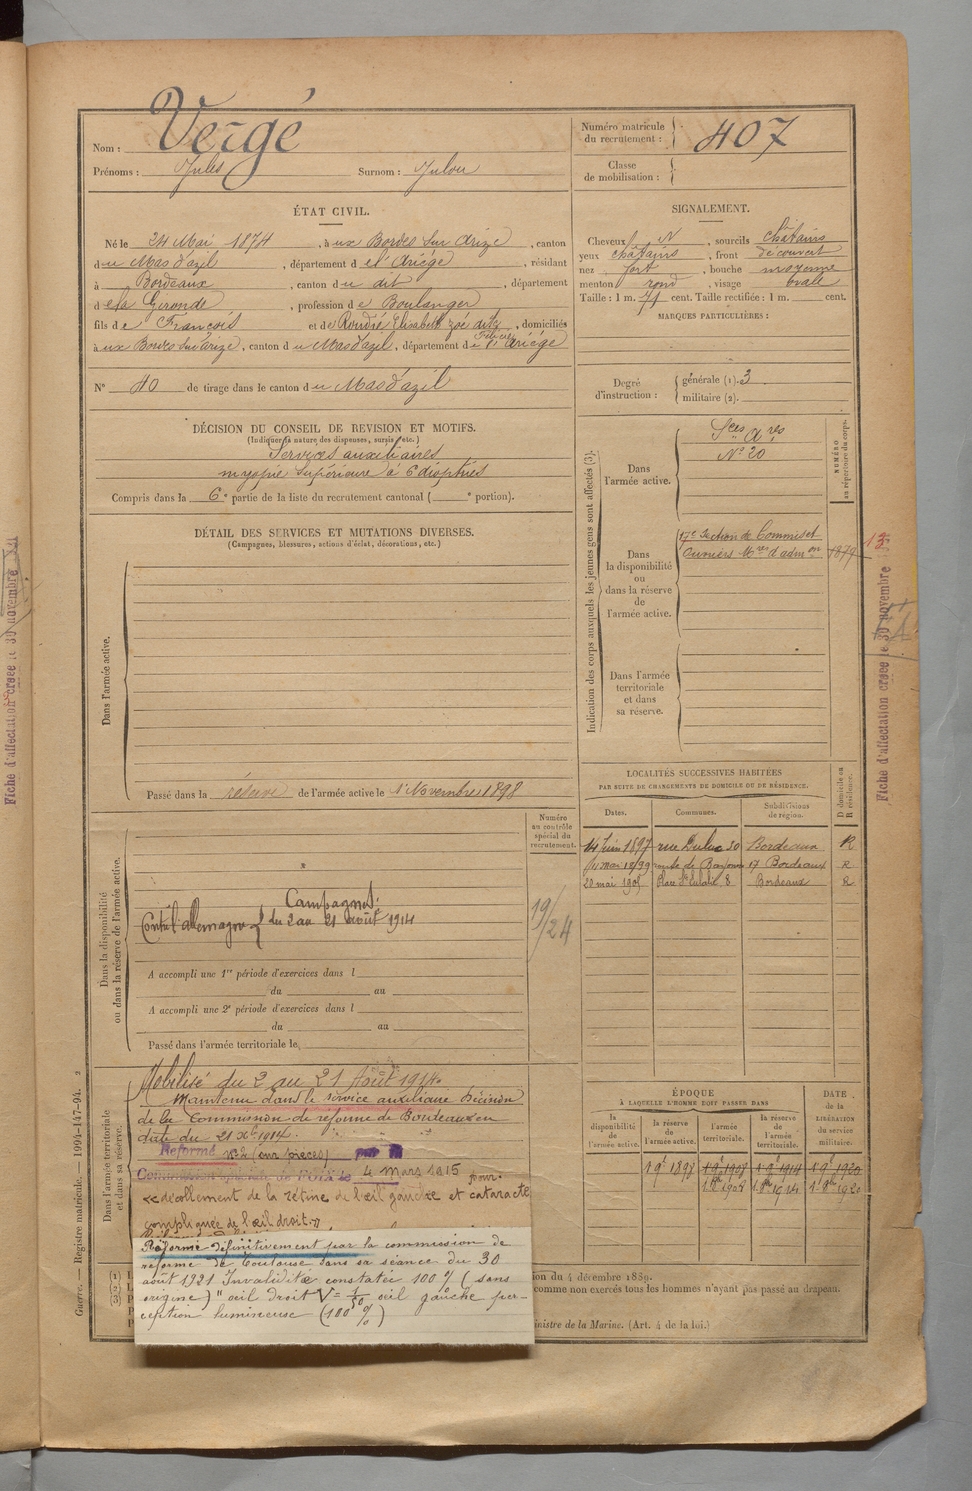 Nom : Vergé
Prénoms : Jules Surnom : Julou
Numéro matricule du recrutement : 407
Classe de mobilisation :
ÉTAT CIVIL.
Né le 24 Mai 1874, à ux Bordes sur Arize, canton
du Mas d'azil, département d e l'Ariège, résidant
à Bordeaux, canton du dit, département
d ela Gironde, profession de Boulanger
fils de François et de Rondié Elisabeth zoé dite Félicie, domiciliés
à ux Bordes sur arize, canton du Mas d'azil, département de l'Ariège
N° 40 de tirage dans le canton du Mas d'azil
SIGNALEMENT.
Cheveux N, sourcils châtains
yeux châtains, front découvert
nez fort, bouche moyenne
menton rond, visage ovale
Taille : 1 m. 71 cent. Taille rectifiée : 1 m. cent.
MARQUES PARTICULIÈRES :
Degré d'instruction : générale (1). 3
militaire (2).
DÉCISION DU CONSEIL DE REVISION ET MOTIFS.
(Indiquer la nature des dispenses, sursis, etc.)
Services auxiliaires
myopie supérieure à 6 dioptries
Compris dans la 6e partie de la liste du recrutement cantonal ( e portion).
DÉTAIL DES SERVICES ET MUTATIONS DIVERSES.
(Campagnes, blessures, actions d'éclat, décorations, etc.)
Dans l'armée active.
Passé dans la réserve de l'armée active le 1er Novembre 1898
Indication des corps auxquels les jeunes gens sont affectés (3).
NUMÉRO au répertoire du corps.
Dans l'armée active.
Sces Ares
N° 20
Dans la disponibilité ou dans la réserve de l'armée active.
17e Section de Commis et
Ouvriers Mres d'admon
1879
Dans l'armée territoriale et dans sa réserve.
13
Fiche d'affectation créée le 30 novembre
Fiche d'affectation créée le 30 novembre
LOCALITÉS SUCCESSIVES HABITÉES
PAR SUITE DE CHANGEMENTS DE DOMICILE OU DE RÉSIDENCE.
Dates. Communes. Subdivisions de région. D domicile ou R résidence.
14 Juin 1897 rue Duluc 30 Bordeaux R
11 mai 1899 route de Bayonne 17 Bordeaux R
20 mai 1905 Place Ste Eulalie, 8 Bordeaux R
Dans la disponibilité ou dans la réserve de l'armée active.
Numéro au contrôle spécial du recrutement.
19/24
Campagnes :
Contre l'allemagne du 2 au 21 août 1914
A accompli une 1re période d'exercices dans l
du au
A accompli une 2e période d'exercices dans l
du au
Passé dans l'armée territoriale le
Dans l'armée territoriale et dans sa réserve.
Mobilisé du 2 au 21 Août 1914.
Maintenu dans le service auxiliaire Décision
de la Commission de réforme de Bordeaux en
date du 21 Xbre 1914.
Réformé N°2 (sur pièces)
4 mars 1915 pour
« décollement de la rétine de l'œil gauche et cataracte
compliquée de l'œil droit. »
Réformé définitivement par la commission de
réforme de Toulouse dans sa séance du 30
août 1921 Invalidité constatée 100 % (sans
origine) " œil droit V = 1/50 œil gauche per-
ception lumineuse (100 %)
ÉPOQUE
À LAQUELLE L'HOMME DOIT PASSER DANS
DATE de la LIBÉRATION du service militaire.
la disponibilité de l'armée active. la réserve de l'armée active. l'armée territoriale. la réserve de l'armée territoriale.
1 9e 1898 1 9e 1908 1 9e 1914 1 9e 1920
1 8bre 1908 1 8bre 1914 1 8bre 1920
ion du 4 décembre 1889.
comme non exercés tous les hommes n'ayant pas passé au drapeau.
inistre de la Marine. (Art. 4 de la loi.)
Guerre. — Registre matricule. — 1994-147-94. 2